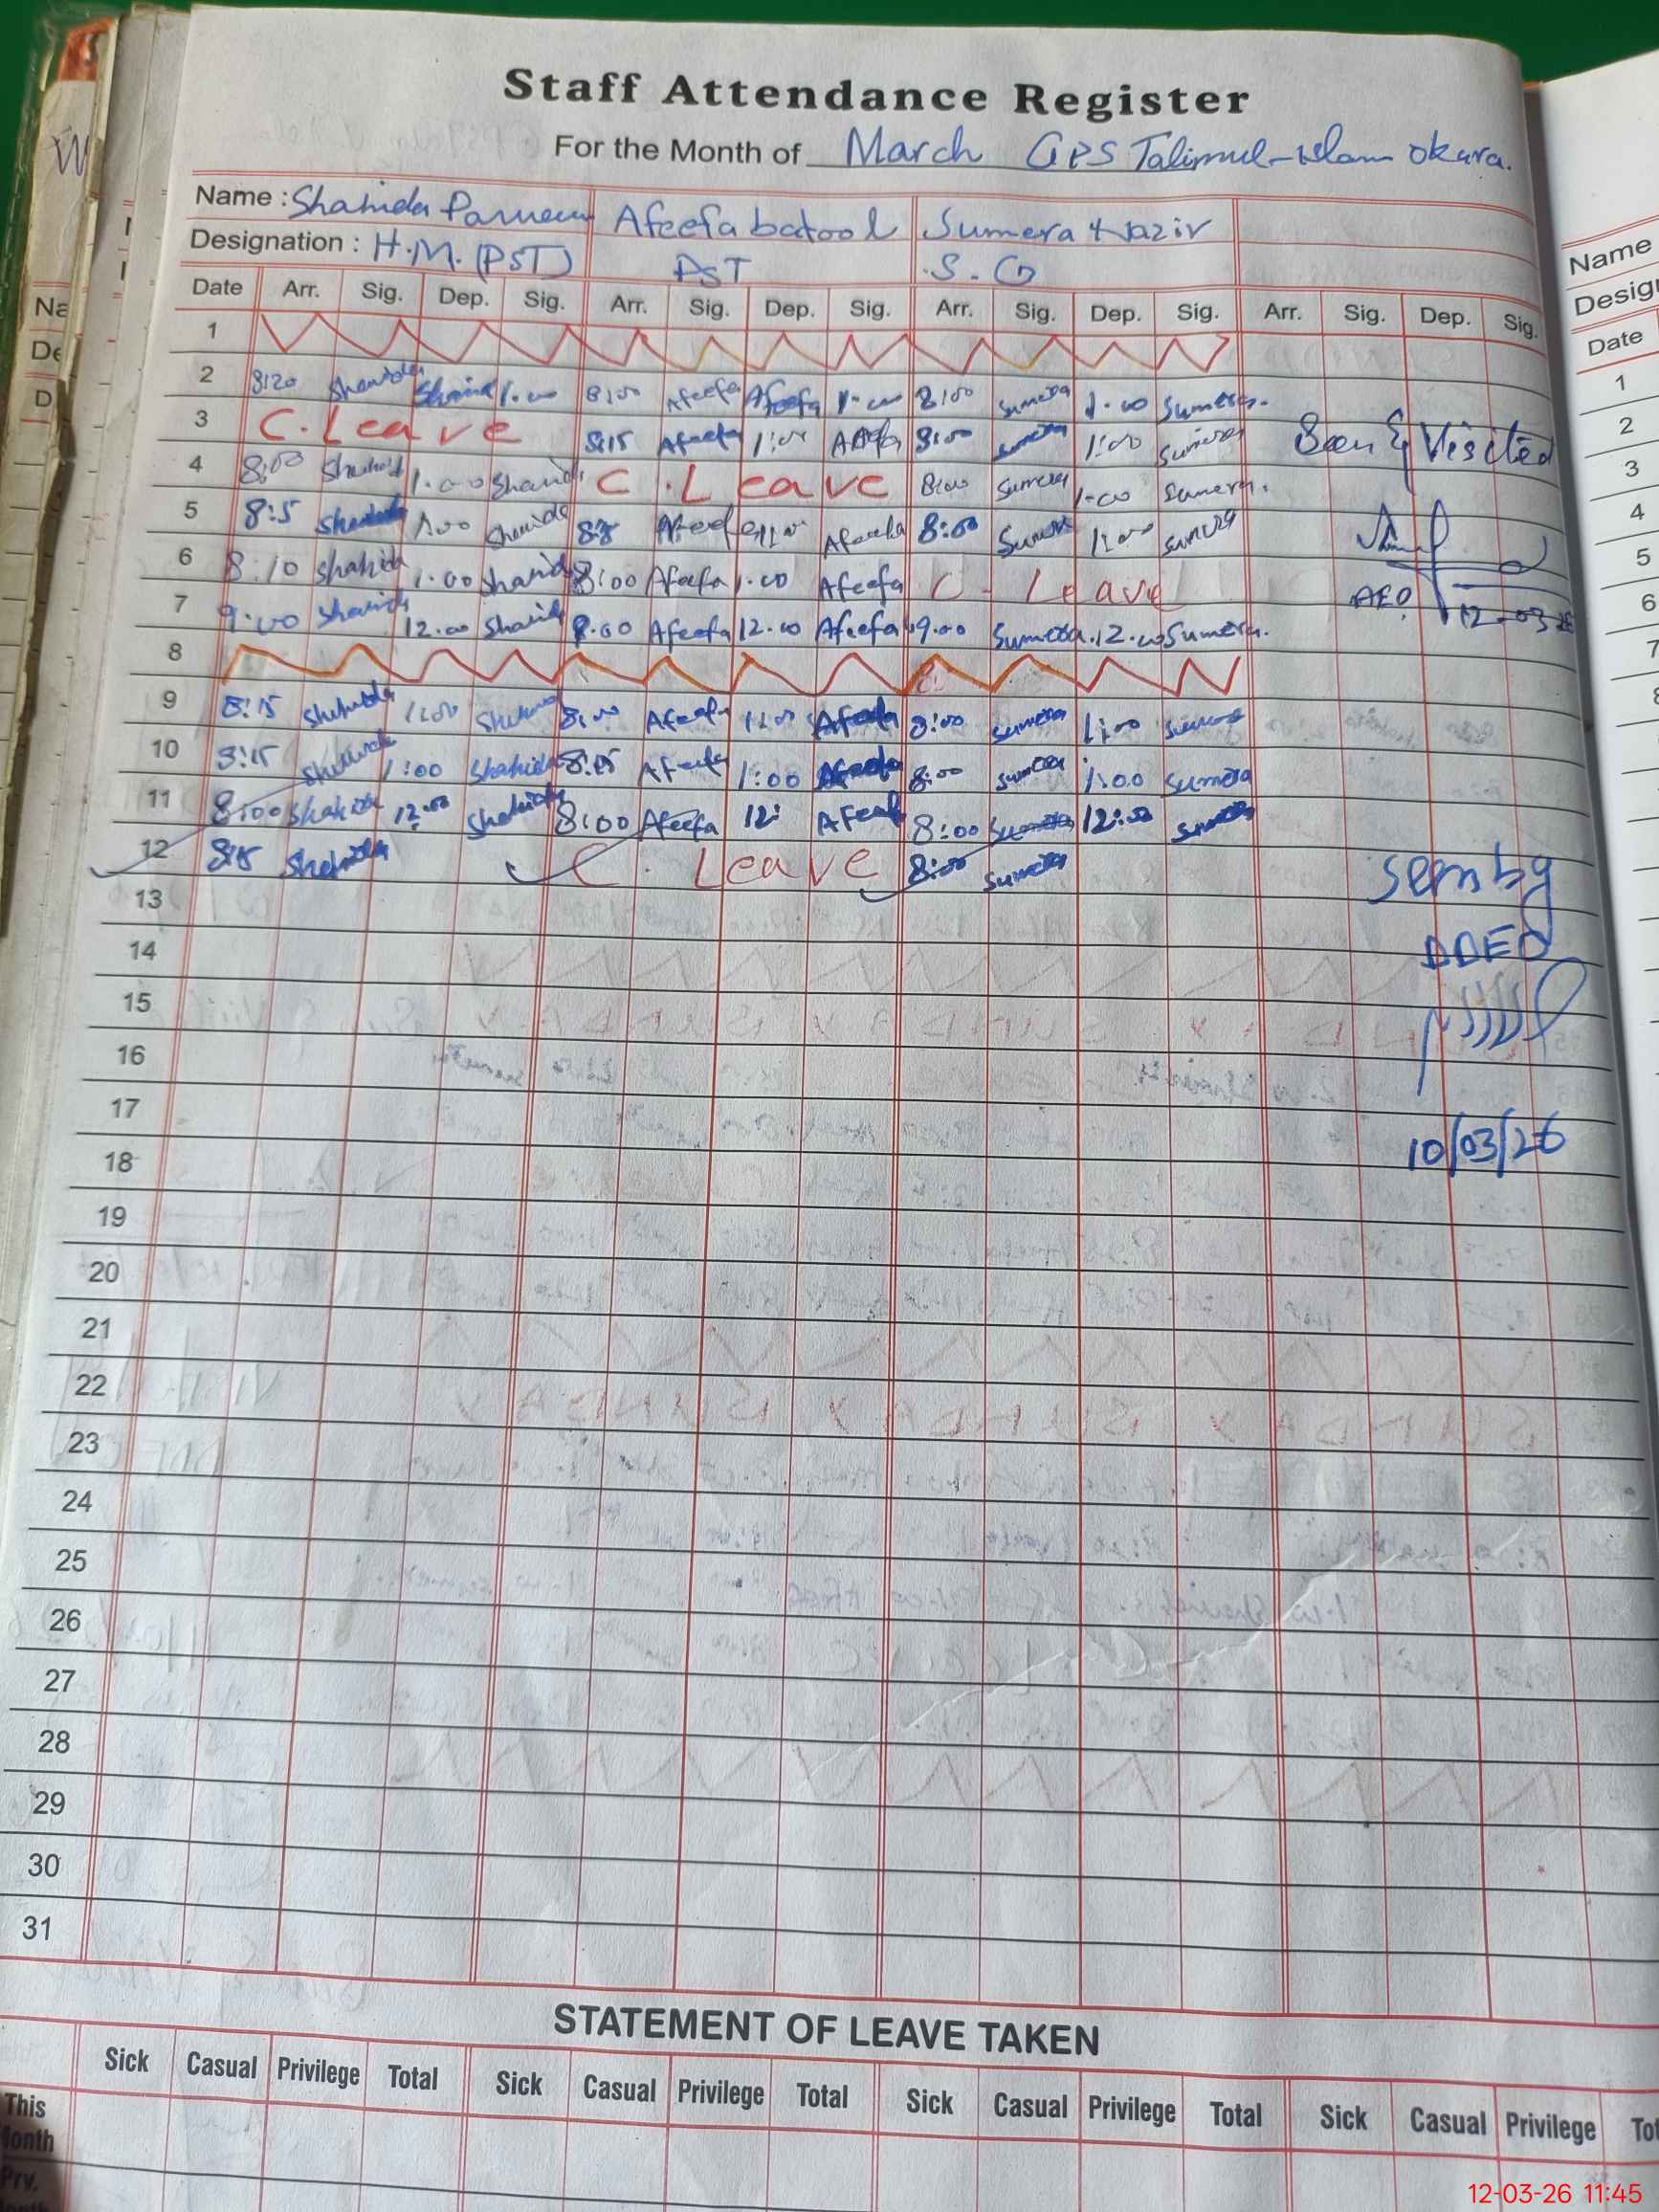 Staff Attendance Register
For the Month of March GPS Talimul-Islam Okara.
Name : Shahida Parveen Afeefa batool Sumera Nazir
Designation : H.M. (PST) PST S.G
Date Arr. Sig. Dep. Sig. Arr. Sig. Dep. Sig. Arr. Sig. Dep. Sig. Arr. Sig. Dep. Sig.
1
2 8:20 Shahida Shahida 1.00 8:00 Afeefa Afeefa 1.00 8:00 Sumera 1.00 Sumera.
3 C. Leave 8:15 Afeefa 1:00 Afeefa 8:00 Sumera 1:00 Sumera Seen & Visited
4 8:00 Shahida 1.00 Shahida C. Leave 8:00 Sumera 1.00 Sumera.
5 8:5 Shahida 1.00 Shahida Afeefa 11:00 Afeefa 8:00 Sumera 11:00 Sumera
6 8:10 Shahida 1.00 Shahida 8:00 Afeefa 1.00 Afeefa C. Leave AEO 12-03-26
7 9:00 Shahida 12.00 Shahida 9.00 Afeefa 12.00 Afeefa 9.00 Sumera 12.00 Sumera.
8
9 8:15 Shahida 1:00 Shahida 8:00 Afeefa 1:00 Afeefa 8:00 Sumera 1:00 Sumera
10 8:15 Shahida 1:00 Shahida 8:15 Afeefa 1:00 Afeefa 8:00 Sumera 1:00 Sumera
11 8:00 Shahida 12:00 Shahida 8:00 Afeefa 12: Afeefa 8:00 Sumera 12:00 Sumera
12 8:15 Shahida C. Leave 8:00 Sumera
Seen by
13
DDEO
14
15
16
17
10/03/26
18
19
20
21
22
23
24
25
26
27
28
29
30
31
STATEMENT OF LEAVE TAKEN
Sick Casual Privilege Total Sick Casual Privilege Total Sick Casual Privilege Total Sick Casual Privilege
This
Month
Prv.
Name
Date
1
2
3
4
5
6
7
12-03-26 11:45